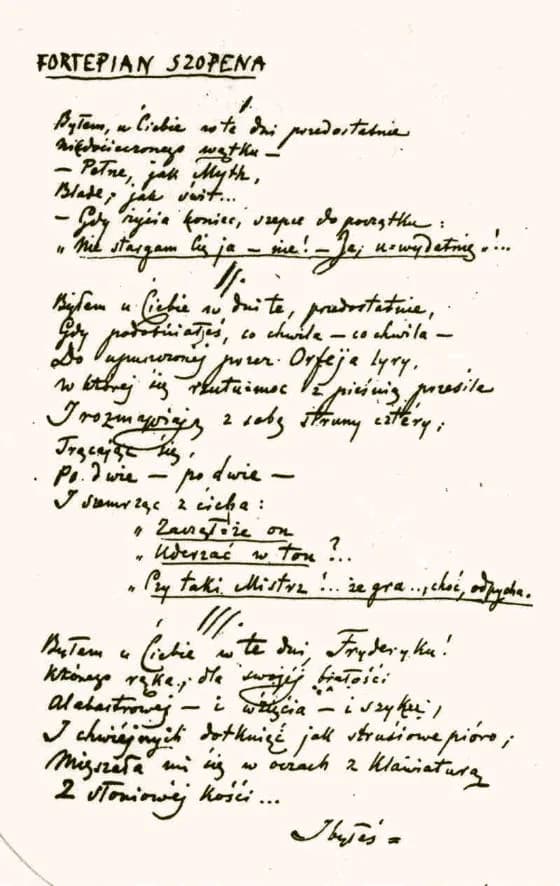 FORTEPIAN SZOPENA
I.
Byłem u Ciebie w te dni przedostatnie
Niedocieczonego wątku —
— Pełne, jak Myth,
Blade, jak świt...
— Gdy życia koniec szepce do początku:
„Nie stargam Cię ja — nie! — Ja, u-wydatnię!"...
II.
Byłem u Ciebie w dni te, przedostatnie,
Gdy podobniałeś, co chwila — co chwila —
Do upuszczonej przez Orfeja lyry,
W której się rzutu-moc z pieśnią przesila
I rozmawiają z sobą struny cztéry,
Trącając się,
Po dwie — po dwie —
I szemrząc z cicha:
„Zacząłże on
„Uderzać w ton?...
„Czy taki Mistrz!... że gra..., choć, odpycha.
III.
Byłem u Ciebie w te dni, Fryderyku!
Którego ręka, dla swojéj białości
Alabastrowéj — i wzięcia — i szyku,
I chwiejnych dotknięć jak strusiowe pióro;
Mięszała mi się w oczach z klawiaturą
Z słoniowéj kości...
I byłeś =